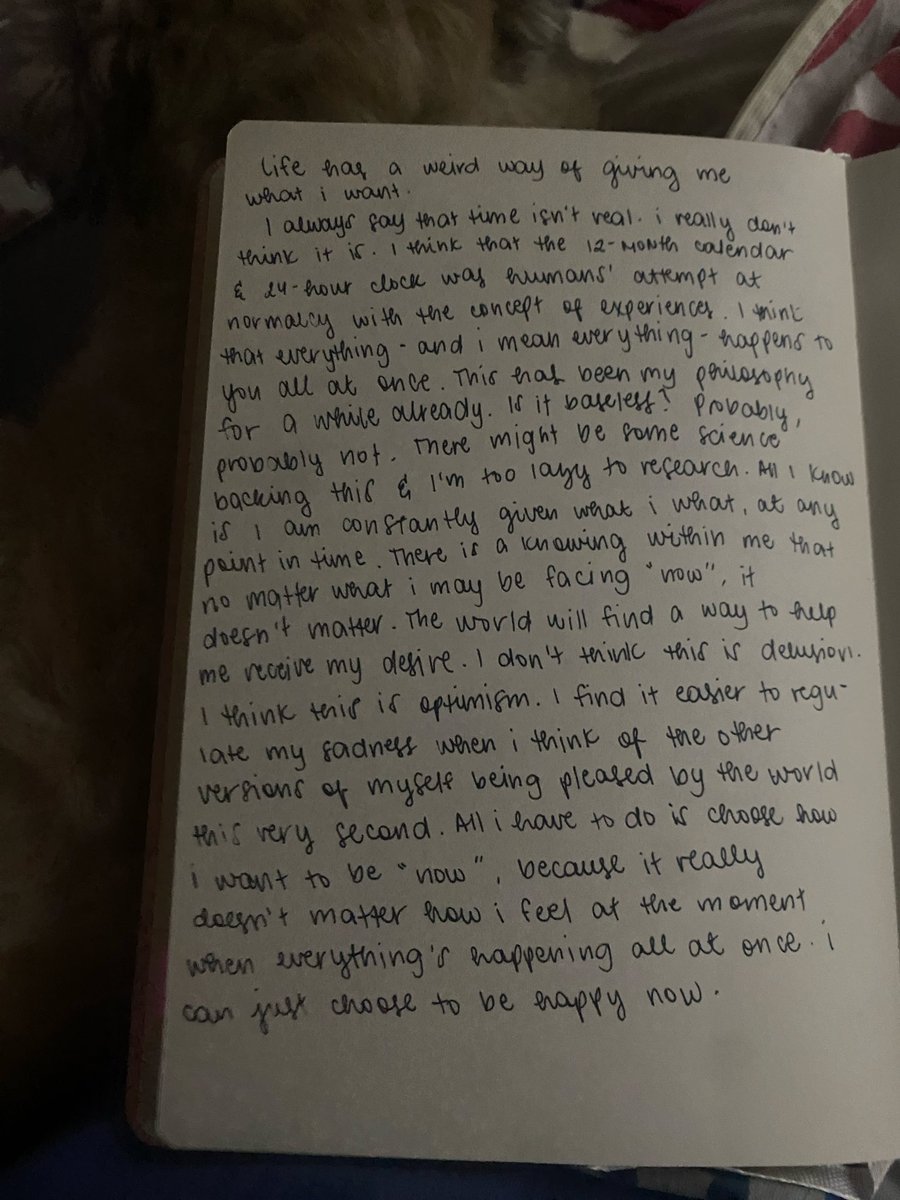 life has a weird way of giving me
what i want.
I always say that time isn't real. i really don't
think it is. I think that the 12-MONTH calendar
& 24-hour clock was humans' attempt at
normalcy with the concept of experiences. I think
that everything - and i mean everything - happens to
you all at once. This has been my philosophy
for a while already. Is it baseless? Probably,
probably not. There might be some science
backing this & I'm too lazy to research. All I know
is I am constantly given what i what, at any
point in time. There is a knowing within me that
no matter what i may be facing "now", it
doesn't matter. The world will find a way to help
me receive my desire. I don't think this is delusion.
I think this is optimism. I find it easier to regu-
late my sadness when i think of the other
versions of myself being pleased by the world
this very second. All i have to do is choose how
i want to be "now", because it really
doesn't matter how i feel at the moment
when everything's happening all at once. i
can just choose to be happy now.